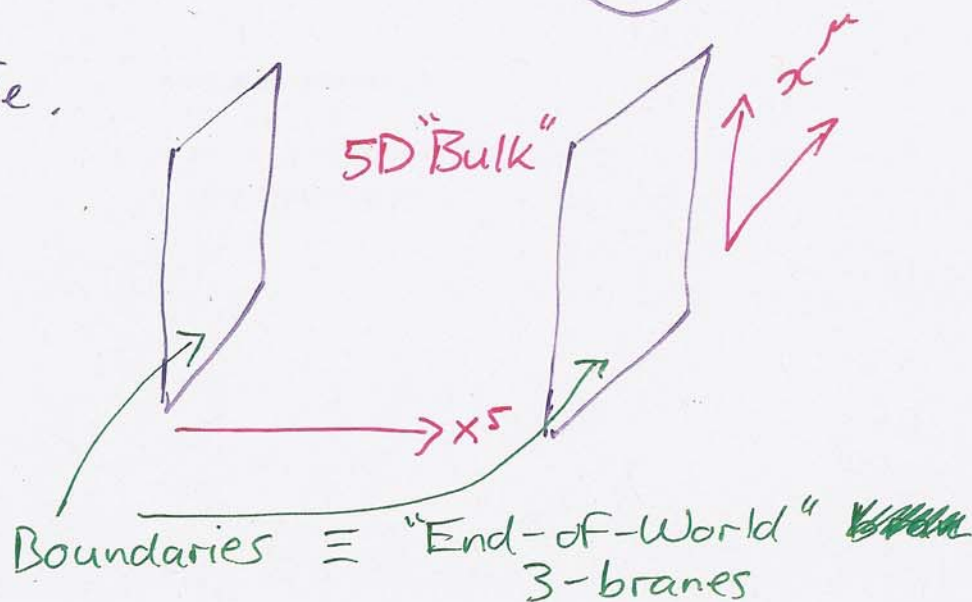 e.
x^μ
5D "Bulk"
→ x^5
Boundaries ≡ "End-of-World"
3-branes